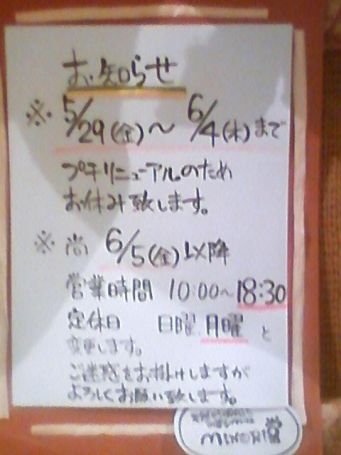 お知らせ
※ 5/29(金)～ 6/4(木)まで
プチリニューアルのため
お休み致します。
※ 尚 6/5(金)以降
営業時間 10:00～18:30
定休日 日曜 月曜 と
変更します。
ご迷惑をお掛けしますが
よろしくお願い致します。
MINORI堂